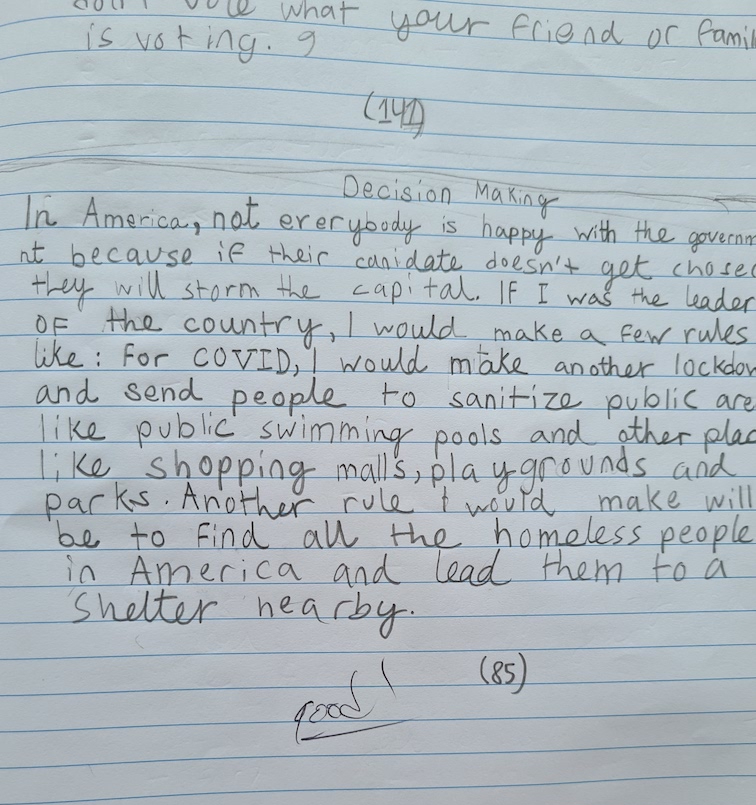 don't vote what your friend or famil
is voting. 9
(141)
Decision Making
In America, not ererybody is happy with the governm
nt because if their canidate doesn't get chosen
they will storm the capital. IF I was the leader
OF the country, I would make a few rules
like: For COVID, I would make another lockdow
and send people to sanitize public are
like public swimming pools and other plac
like shopping malls, playgrounds and
parks. Another rule I would make will
be to find all the homeless people
in America and lead them to a
shelter nearby.
(85)
good!